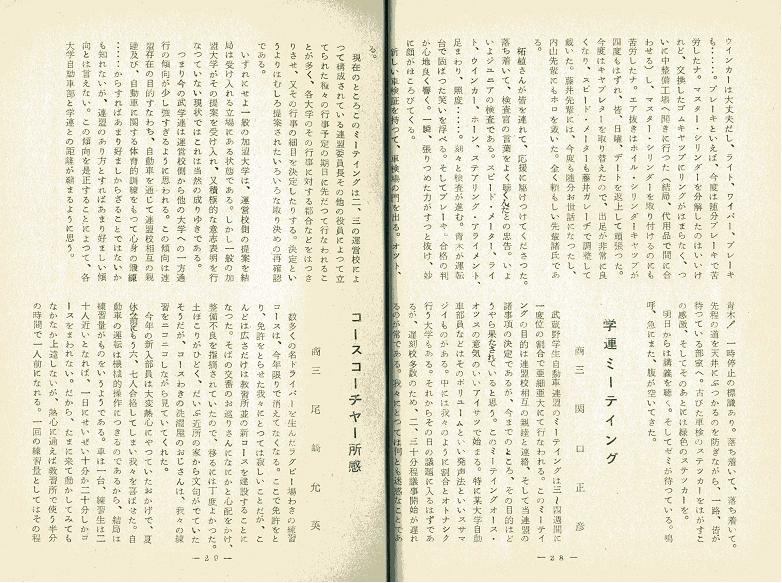 ウインカーは大丈夫だし、ライト、ワイパー、ブレーキ
も・・・・。ブレーキといえば、今度は随分ブレーキで苦
労したナ。マスター・シリンダーを分解したのはいいけ
れど、交換したゴムキャップにリングがはまらなく、つ
いに中整備工場へ聞きに行つた(結局、代用品で間に合
わせる)し、マスター・シリンダーを取り付けるのにも
苦労したナ。エア抜きはホイル・シリンダーキャップが
四度もはずれ、皆、日曜、デートを返上して頑張つた。
今度はキャブレターを取り替えたので、出足が非常に良
くなり、スピード・メーターも藤井ガレーヂで調整して
戴いた。藤井先輩には、今度も随分お世話になつたし、
内山先輩にもホロを戴いた。全く頼もしい先輩諸氏であ
る。
柘植さんが皆を連れて、応援に駆けつけてくださつた。
落ち着いて、検査官の言葉をよく聴くんだとの忠告。いよ
いよジュニアの検査である。スピード・メーター、ライ
ト、ウインカー、ホーン、ステアリング・アライメント、
足まわり、照度・・・・。刻々と検査が進む。青木が運転
台で固ばつた笑いを浮べる。そしてブレーキ、合格の判
が心地良く響く。一瞬、張りつめた力がすつと抜け、妙
に顔がほころびてくる。
新しい車検証を持つて、車検場の門を出る。オット、
青木! 一時停止の標識あり。落ち着いて、落ち着いて。
先程の道を天井にぶつかるのを防ぎながら、一路、皆が
待つている部室へ。古びた車検のステッカーをはがすこ
の感激、そしてそのあとには緑色のステッカーを。
明日からは講義を聴く。そしてゼミが待つている。嗚
呼、急にまた、腹が空いてきた。
学連ミーテイング
商三 関口正彦
武蔵野学生自動車連盟のミーテイングは三〜四週間に
一度位の割合で亜細亜大にて行なわれる。このミーテイ
ングの目的は連盟校相互の親睦と連絡、そして当連盟の
諸事項の決定であるが、今までのところ、その目的はど
うやら果たされていると思う。このミーテイングオース・
オッスの意気のいいアイサツで始まる。特に某大学自動
車部員などはそのボリュームといい発声法といいスサマ
ジイものがある。中には我々のように割合とオトナシク
行う大学もある。それからその日の議題に入るはずであ
るが、遅刻校多数のため、二、三十分程議事開始が遅れ
るのが常である。我々にとつては何とも迷惑なことであ
る。
― 28 ―
現在のところこのミーテイングは二、三の運営校によ
つて構成されている連盟委員長その他の役員によつて立
てられた種々の行事予定の期日に先だつて行なわれるこ
とが多く、各大学のその行事に対する都合などをはつき
りさせ、又その行事の細目を決定したりする。決定とい
うよりはむしろ提案されたいろいろな取り決めの再確認
である。
いずれにせよ一般の加盟大学は、運営校側の提案を結
局は受け入れる立場にある状態である。しかし一般の加
盟大学がその提案を受け入れ、又積極的な意志表明を行
なつていない現状ではこれは当然の成りゆきである。
つまり今の武学連は運営校側から他の大学への一方通
行の傾向が少し強すぎるように思われる。この傾向は連
盟存在の目的すなわち、自動車を通じて連盟校相互の親
睦及び、自動車に関する体育的訓練をもつて心身の鍛練
・・・・からすればあまり好ましからざることではないか
も知れないが、連盟のあり方とすればあまり好ましい傾
向とは言えない。この傾向を是正することによつて、各
大学自動車部と学連との距離が縮まるように思う。
コースコーチャー所感
商三 尾崎允英
数多くの名ドライバーを生んだラグビー場わきの練習
コースは、今年限りで消えてなくなる。ここで免許をと
り、免許をとらせた我々にとつては寂しいことだが、こ
んどは広さだけは教習所並の新コースを建設することに
なつた。そばの交番のお巡りさんになにかと心配をかけ、
整備不良を指摘されていたので、移るには丁度よかつた。
土ほこりがひどく、だいぶ近所の家から文句がでていた
そうだが、コースわきの洗濯屋のおじさんは、我々の練
習をニコニコしながら見ていてくれた。
今年の新入部員は大変熱心にやつていたおかげで、夏
休み前にもう六、七人合格してしまい我々を喜ばせた。自
動車の運転は機械的操作につきるのであるから、結局は
練習量がものをいうようである。車は一台、練習生は二
十人近いとなれば、一日にせいぜい十分か二十分しかコ
ースをまわれない。だから、たまに来て動かしてみても
なかなか上達しないが、熱心に通えば教習所で使う半分
の時間で一人前になれる。一回の練習量としてはその程
― 29 ―